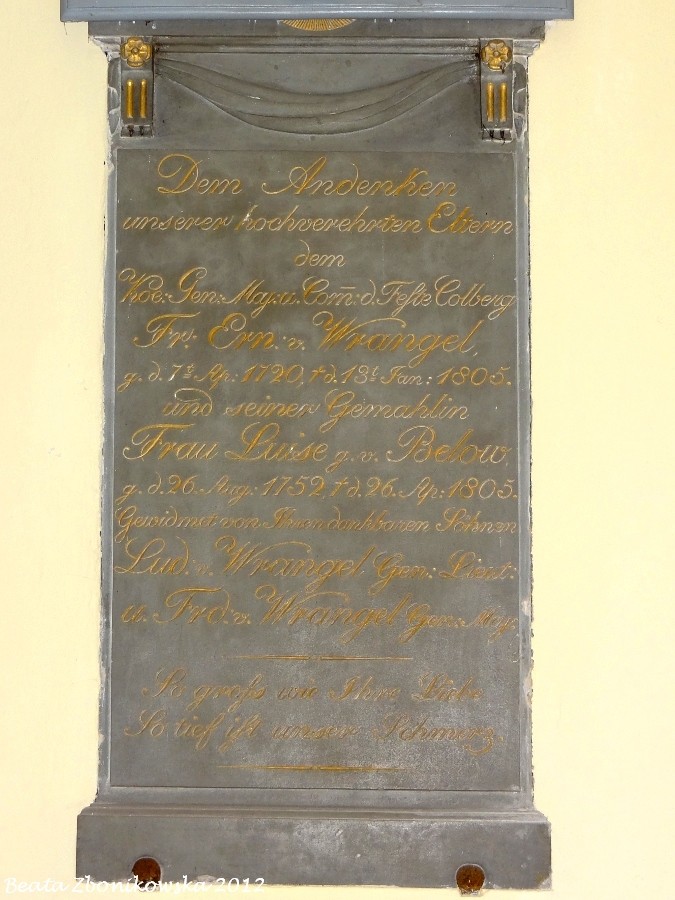 Dem Andenken
unserer hochverehrten Eltern
dem
Koe: Gen: Maj: u. Com̅: d. Feste Colberg
Fr: Ern: v. Wrangel,
g. d. 7t. Ap: 1720, † d. 13t Jan: 1805.
und seiner Gemahlin
Frau Luise g. v. Below,
g. d. 26. Aug: 1752, † d. 26. Ap: 1805.
Gewidmet von Ihren dankbaren Söhnen
Lud: v. Wrangel Gen: Lieut:
u. Frd: v. Wrangel Gen: Maj.
So groſs wie Ihre Liebe
So tief iſt unser Schmerz.
Beata Zbonikowska 2012